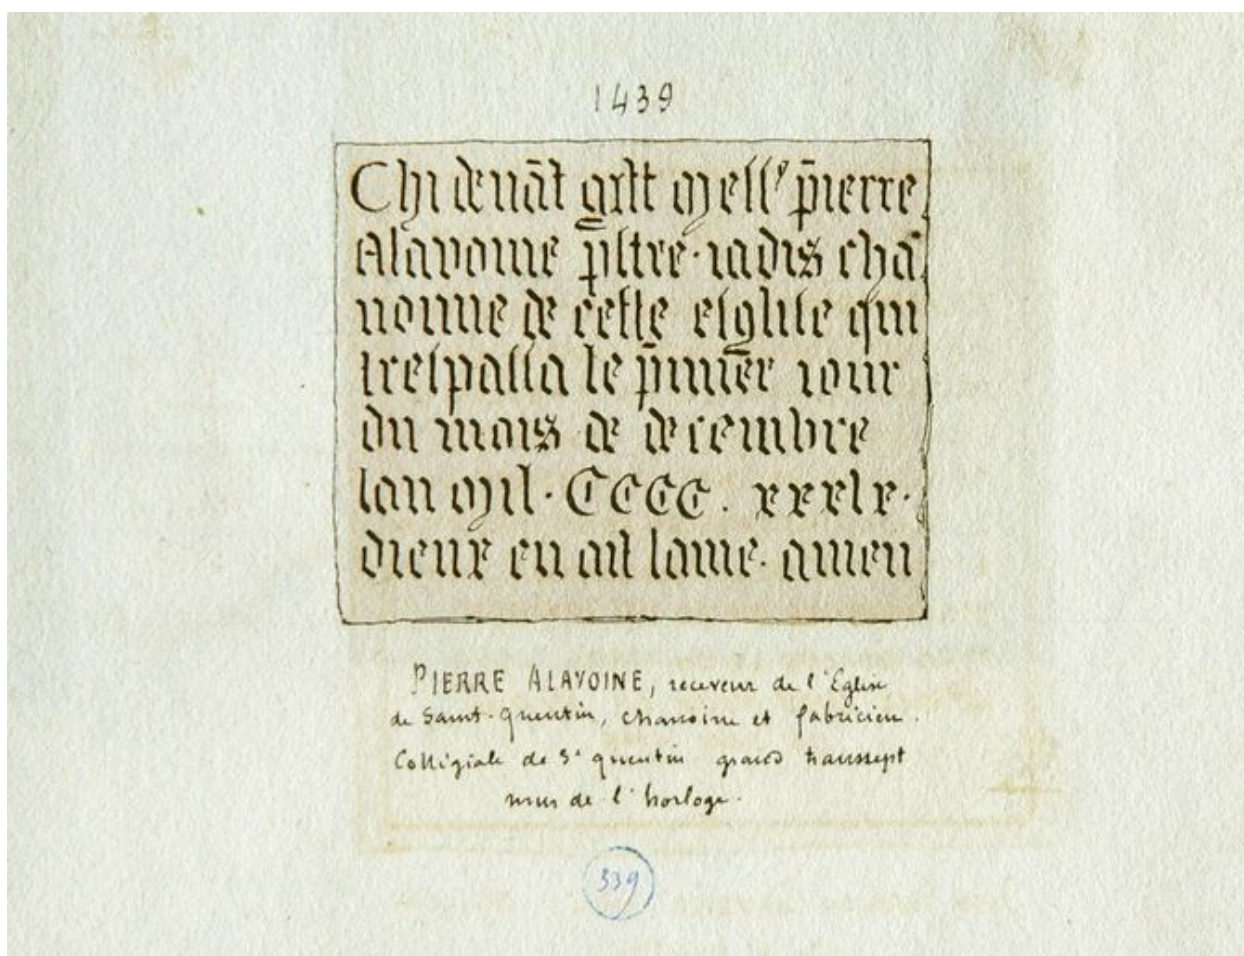 1439
Chi devāt gist mess' p̄ierre
Alavoine p̄stre · iadis chā
nonne de ceste esglise qui
trespassa le p̄mier iour
du mois de decembre
lan mil · CCCC . xxxix ·
dieux en ait lame · amen
PIERRE ALAVOINE, receveur de l'Eglise
de Saint-Quentin, chanoine et fabricien .
Collégiale de St quentin grand transsept
mur de l'horloge .
339